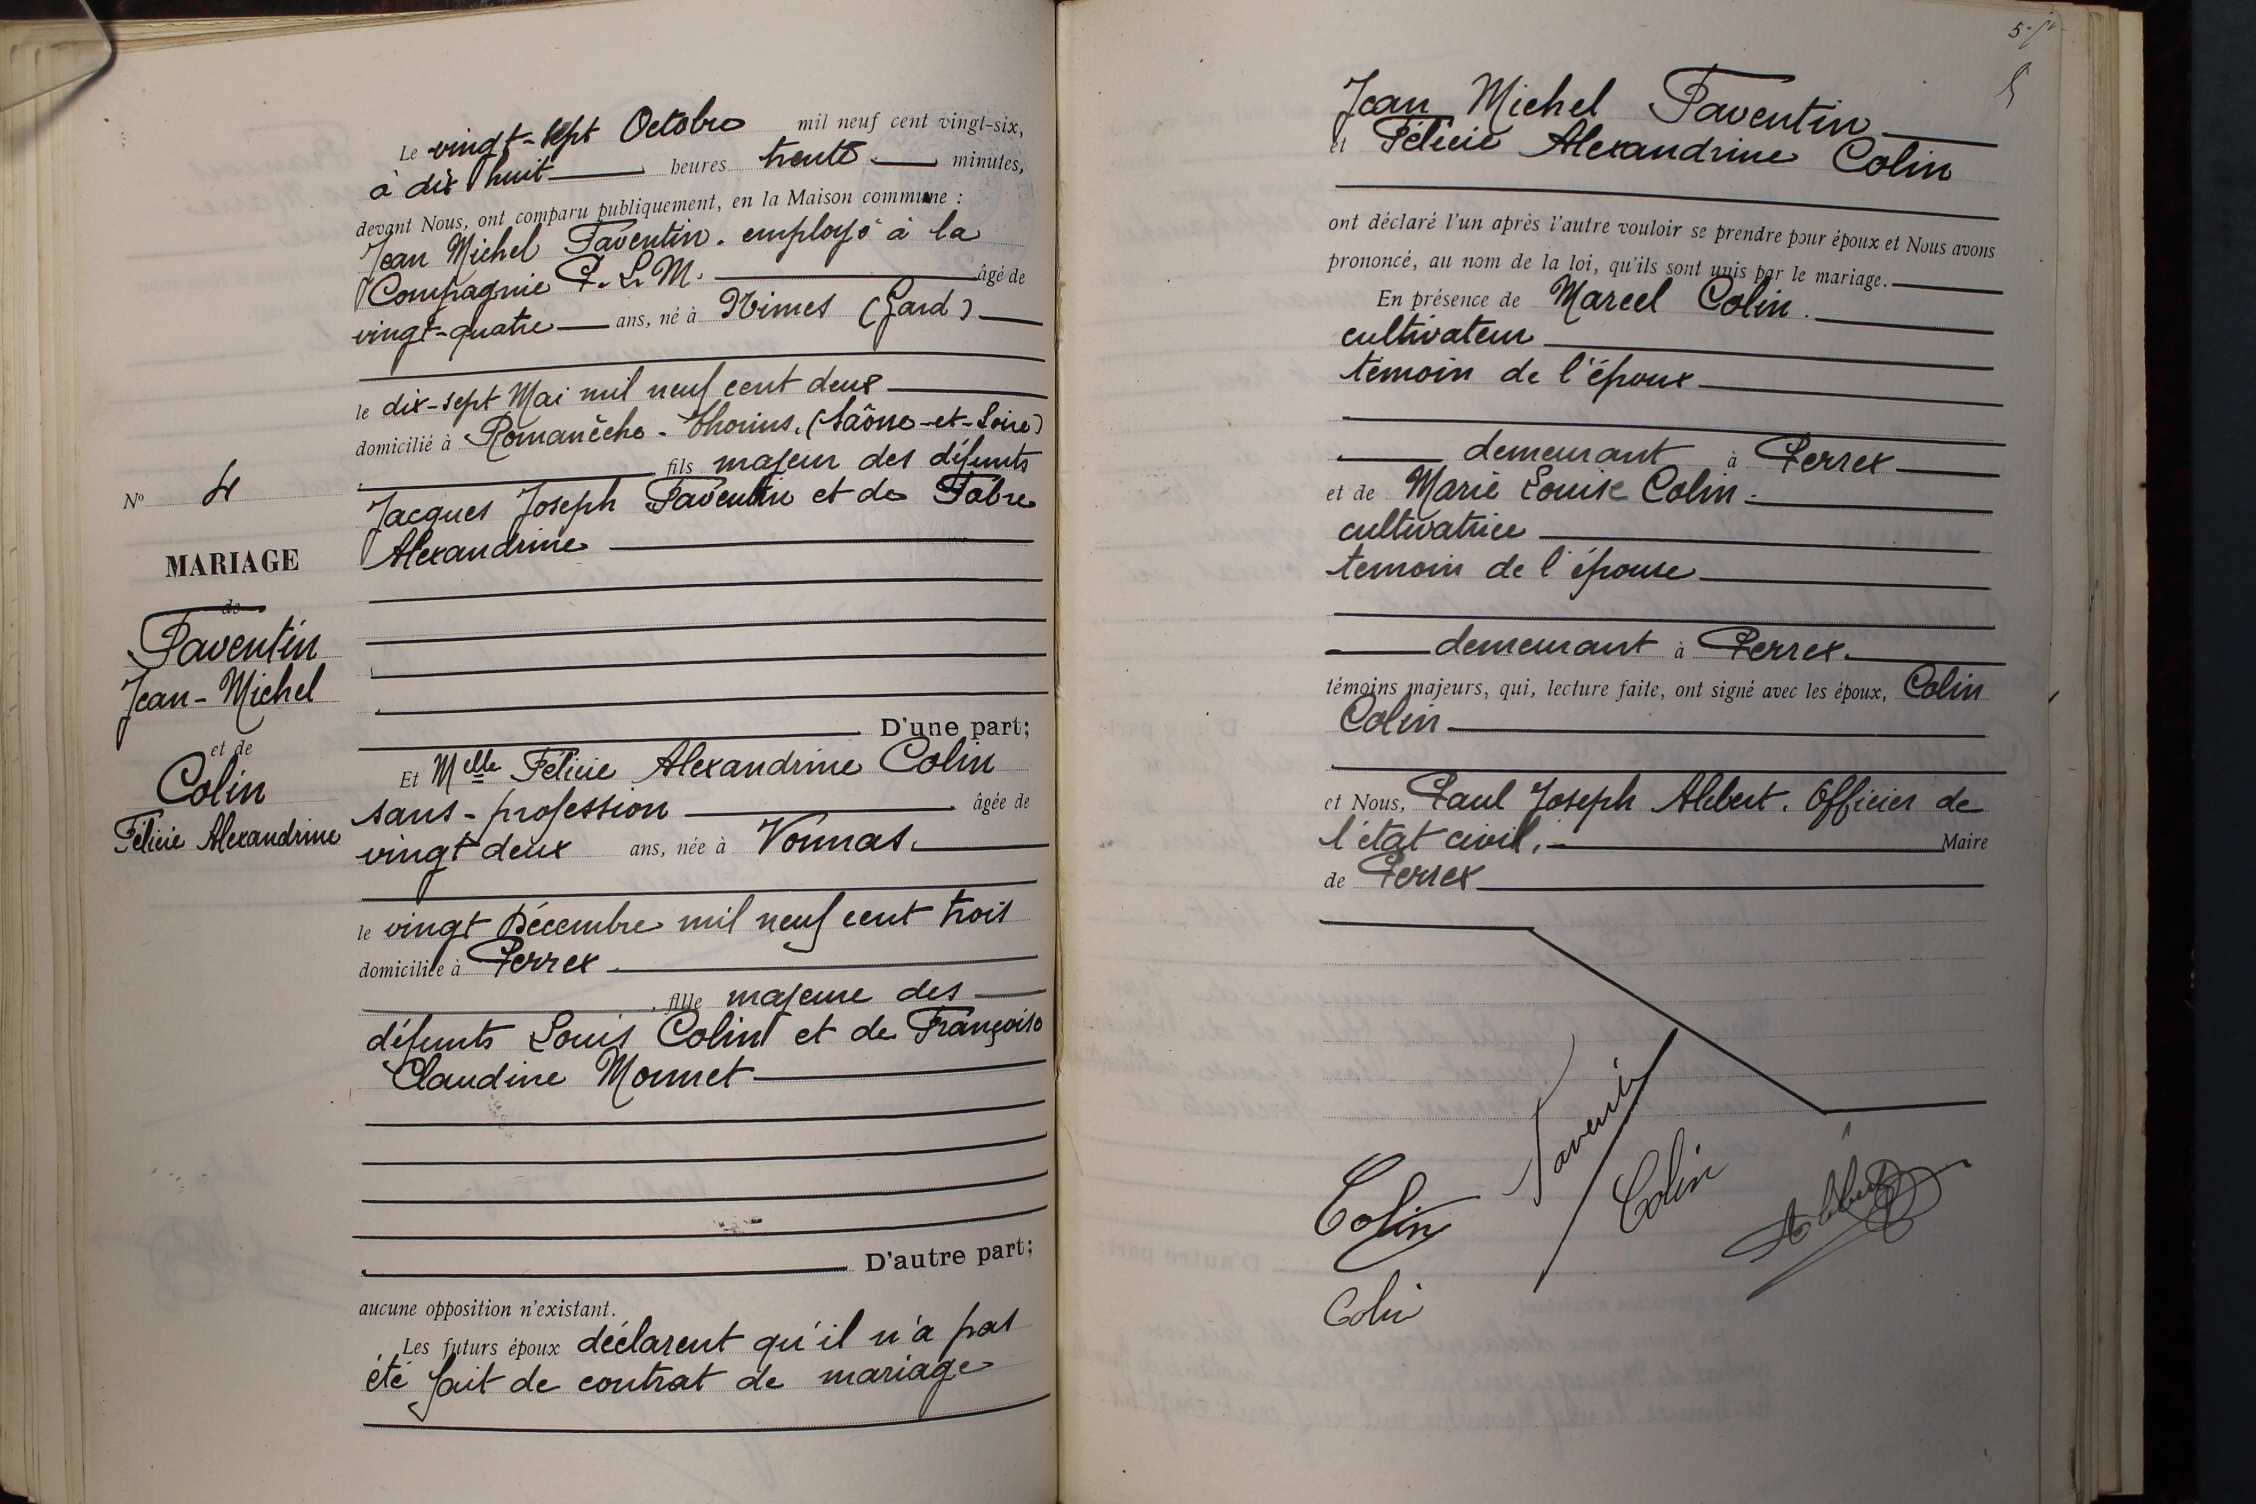 N° 4
MARIAGE
de
Faventin
Jean-Michel
et de
Colin
Félicie Alexandrine
Le vingt-sept Octobre mil neuf cent vingt-six,
à dix huit heures trente minutes,
devant Nous, ont comparu publiquement, en la Maison commune :
Jean Michel Faventin. employé à la
Compagnie P.L.M. âgé de
vingt-quatre ans, né à Nimes (Gard)
le dix-sept Mai mil neuf cent deux
domicilié à Romanèche-Thorins. (Saône-et-Loire)
fils majeur des défunts
Jacques Joseph Faventin et de Fabre
Alexandrine
D'une part;
Et Melle Félicie Alexandrine Colin
sans-profession âgée de
vingt deux ans, née à Vonnas.
le vingt Décembre mil neuf cent trois
domiciliée à Perrex
fille majeure des
défunts Louis Colin et de Françoise
Claudine Monnet
D'autre part;
aucune opposition n'existant.
Les futurs époux déclarent qu'il n'a pas
été fait de contrat de mariage
5
Jean Michel Faventin
et Félicie Alexandrine Colin
ont déclaré l'un après l'autre vouloir se prendre pour époux et Nous avons
prononcé, au nom de la loi, qu'ils sont unis par le mariage.
En présence de Marcel Colin.
cultivateur
témoin de l'époux
demeurant à Perrex
et de Marie Louise Colin.
cultivatrice
temoin de l'épouse
demeurant à Perrex.
témoins majeurs, qui, lecture faite, ont signé avec les époux, Colin
Colin
et Nous, Paul Joseph Alebert. Officier de
l'état civil. Maire
de Perrex
Faventin
Colin
Colin
Alebert
Colin